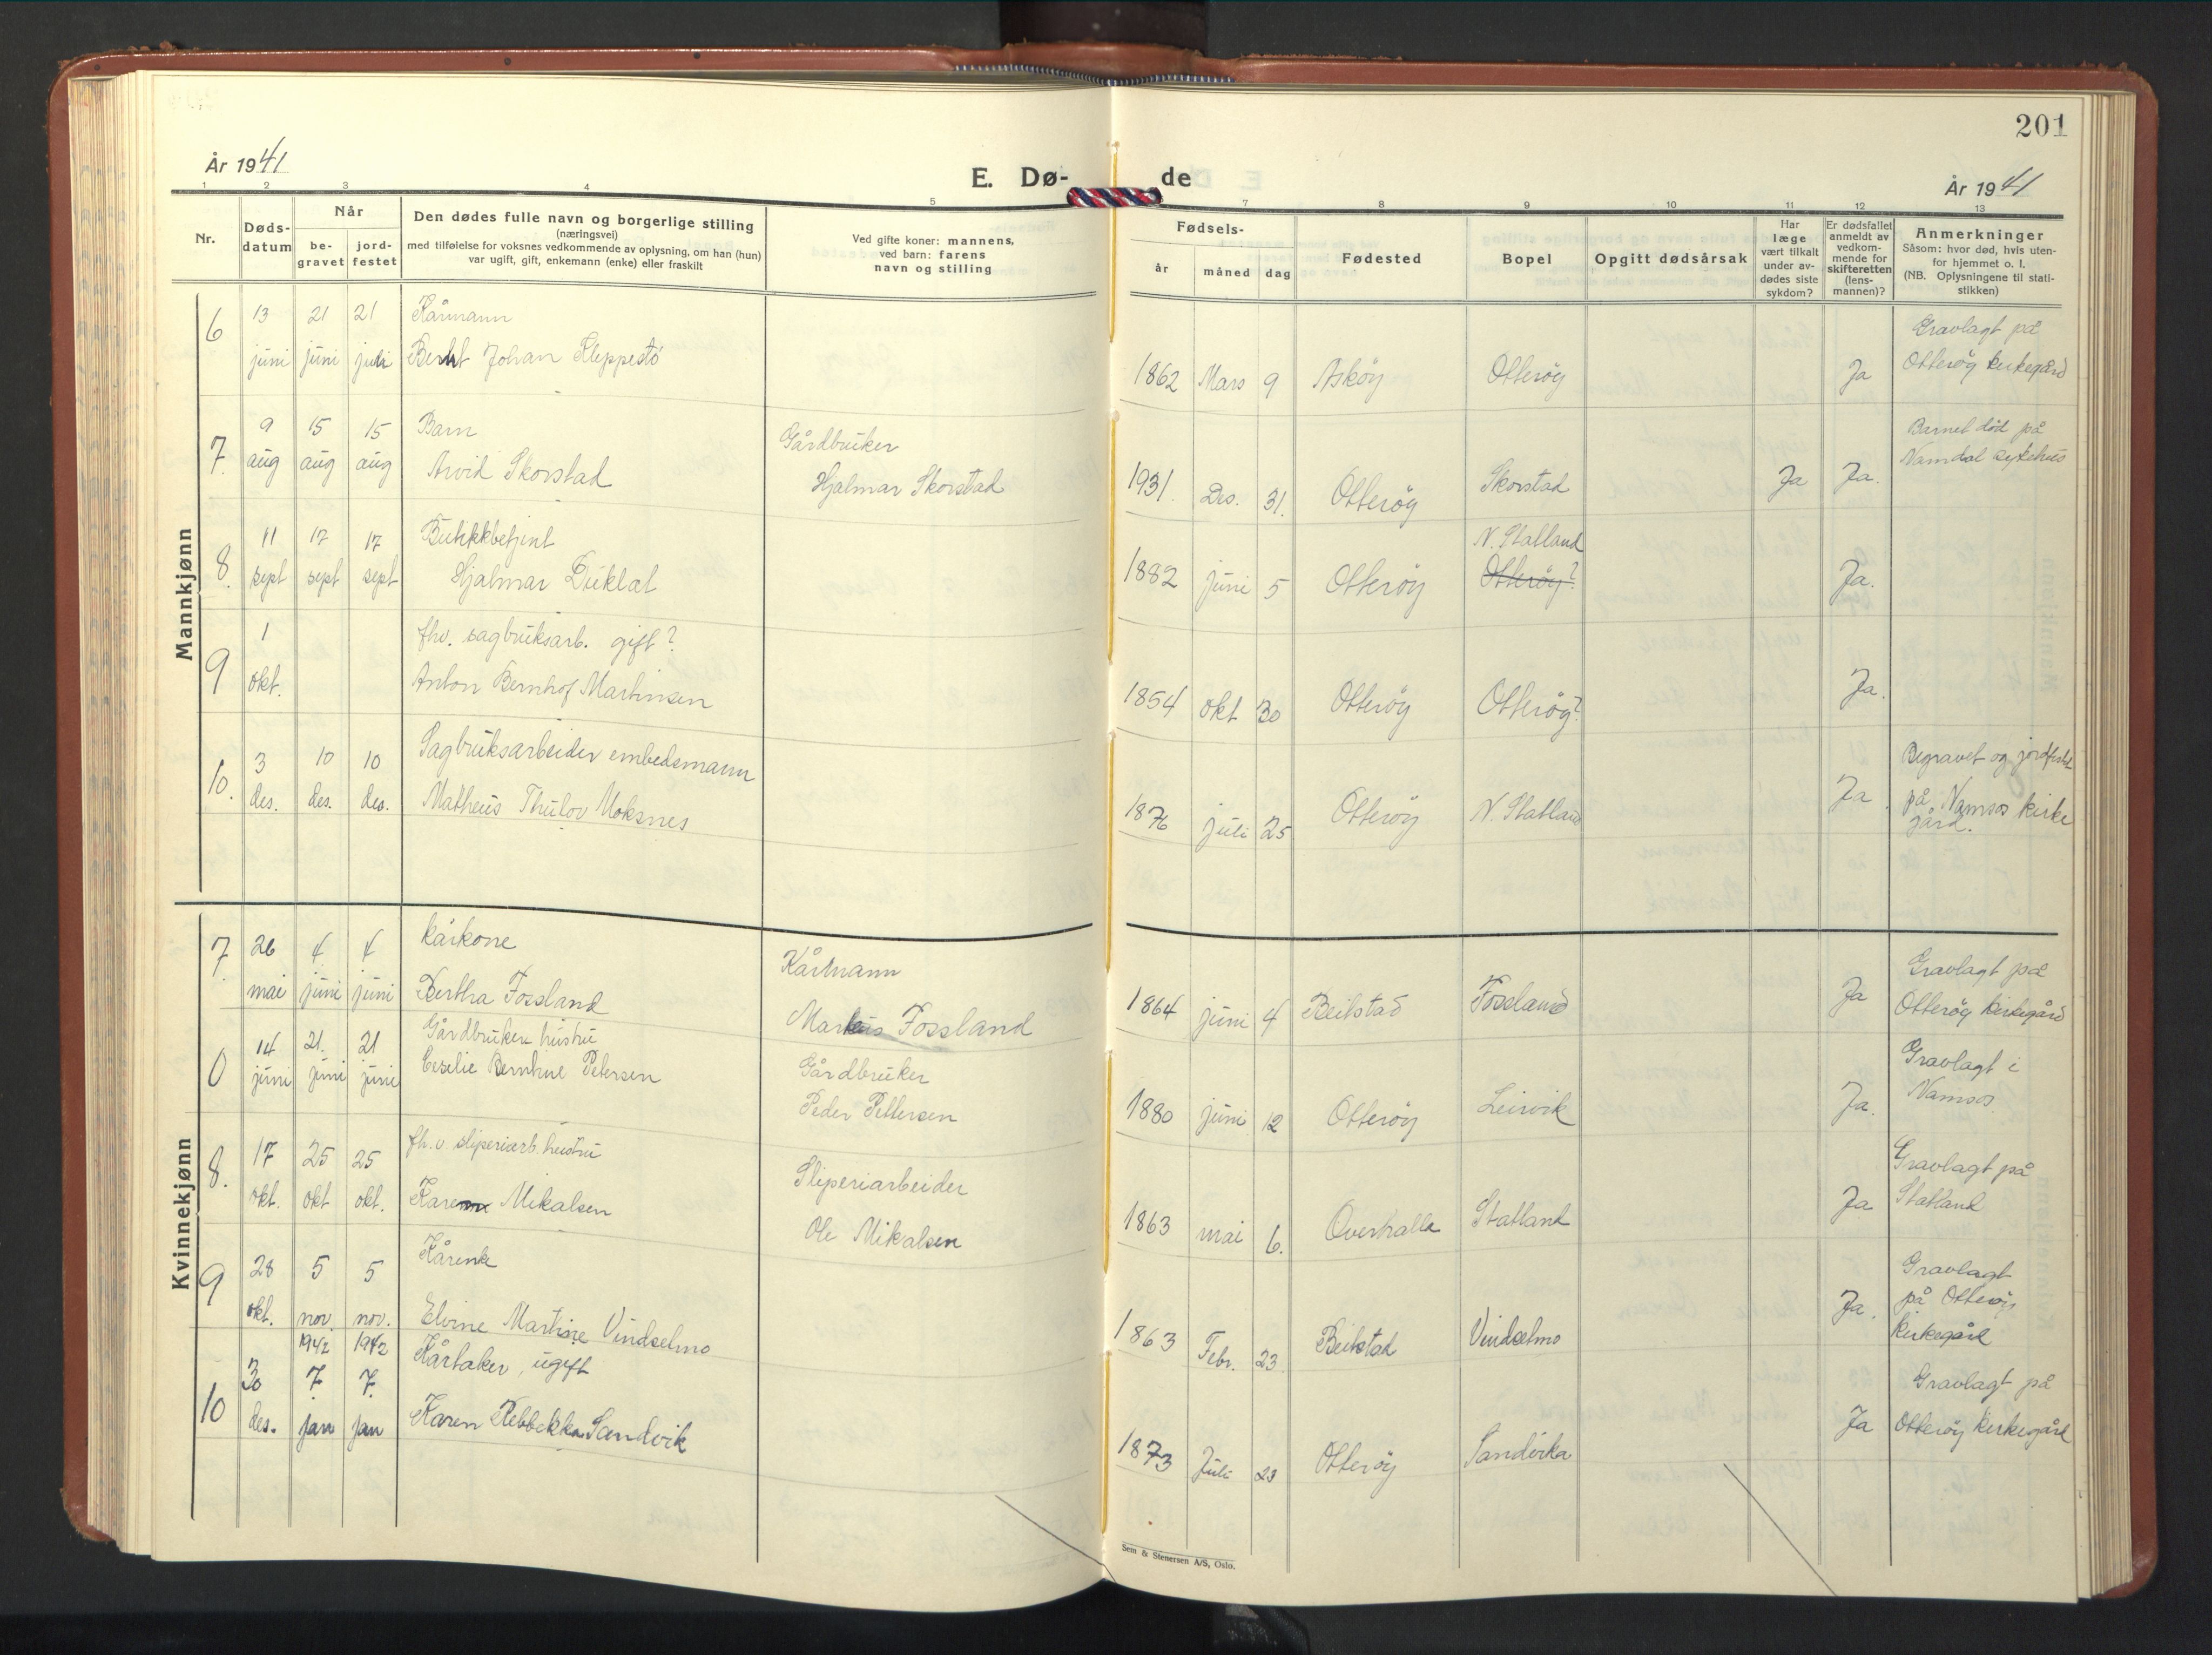 201
År 1941
E. Dø- de
År 1941
1 2 3 4 5 7 8 9 10 11 12 13
Nr.
Døds-
datum
Når
be-
gravet
jord-
festet
Den dødes fulle navn og borgerlige stilling
(næringsvei)
med tilføielse for voksnes vedkommende av oplysning, om han (hun)
var ugift, gift, enkemann (enke) eller fraskilt
Ved gifte koner: mannens,
ved barn: farens
navn og stilling
Fødsels-
år måned dag
Fødested
Bopel
Opgitt dødsårsak
Har
læge
vært tilkalt
under av-
dødes siste
sykdom?
Er dødsfallet
anmeldt av
vedkom-
mende for
skifteretten
(lens-
mannen)?
Anmerkninger
Såsom: hvor død, hvis uten-
for hjemmet o. l.
(NB. Oplysningene til stati-
stikken)
Mannkjønn
6 13 21 21 Kårmann Gravlagt på
juni juni juli Berht Johan Kleppestö 1862 Mars 9 Asköy Otteröy Ja Otteröy kirkegård
7. 9 15 15 Barn Gårdbruker Barnet död på
aug aug aug Arvid Skorstad Hjalmar Skorstad 1931. Des. 31. Otteröy Skorstad Ja Ja. Namdal sykehus
8. 11 17 17 Butikkbetjent N. Statland
sept sept sept Hjalmar Duklat 1882 juni 5 Otteröy Otteröy? Ja.
9 1 fhv. sagbruksarb. gift?
okt. Anton Bernhof Martinsen 1854 okt 30 Otteröy Otteröy? Ja.
10. 3 10 10 Sagbruksarbeider embedsmann Begravet og jordfestet
des. des. des. Matheus Thulov Moksnes 1876 juli 25 Otteröy N. Statland Ja på Namsos kirke
gård.
Kvinnekjønn
7. 26 4 4 kårkone Kårmann Gravlagt på
mai juni juni Bertha Fossland Markus Fossland 1864 juni 4 Beitstad Fossland Ja Otteröy kirkegård
0 14 21. 21 Gårdbruker hustru Gårdbruker Gravlagt i
juni juni juni Petersen Peder Pettersen 1880 juni 12 Otteröy Leirvik Ja. Namsos
8. 17 25 25 fh.v. sliperiarb. hustru Sliperiarbeider Gravlagt på
okt. okt okt. Karen Mikalsen Ole Mikalsen 1863 mai 6. Overhalla Statland Ja Statland
9 28 5 5 Kårenk Gravlagt
okt. nov. nov. Elvine Martine Vindselmo 1863 Febr. 23 Beitstad Vindselmo Ja. på Otteröy
kirkegård
1942 1942 Kårtaker, ugift
10 30 7. 7. Gravlagt på
des. jan jan Karen Rebbekka Sandvik 1873 Juli 23 Otteröy Sandvika Ja Otteröy kirkegård
Sem & Stenersen A/S, Oslo.